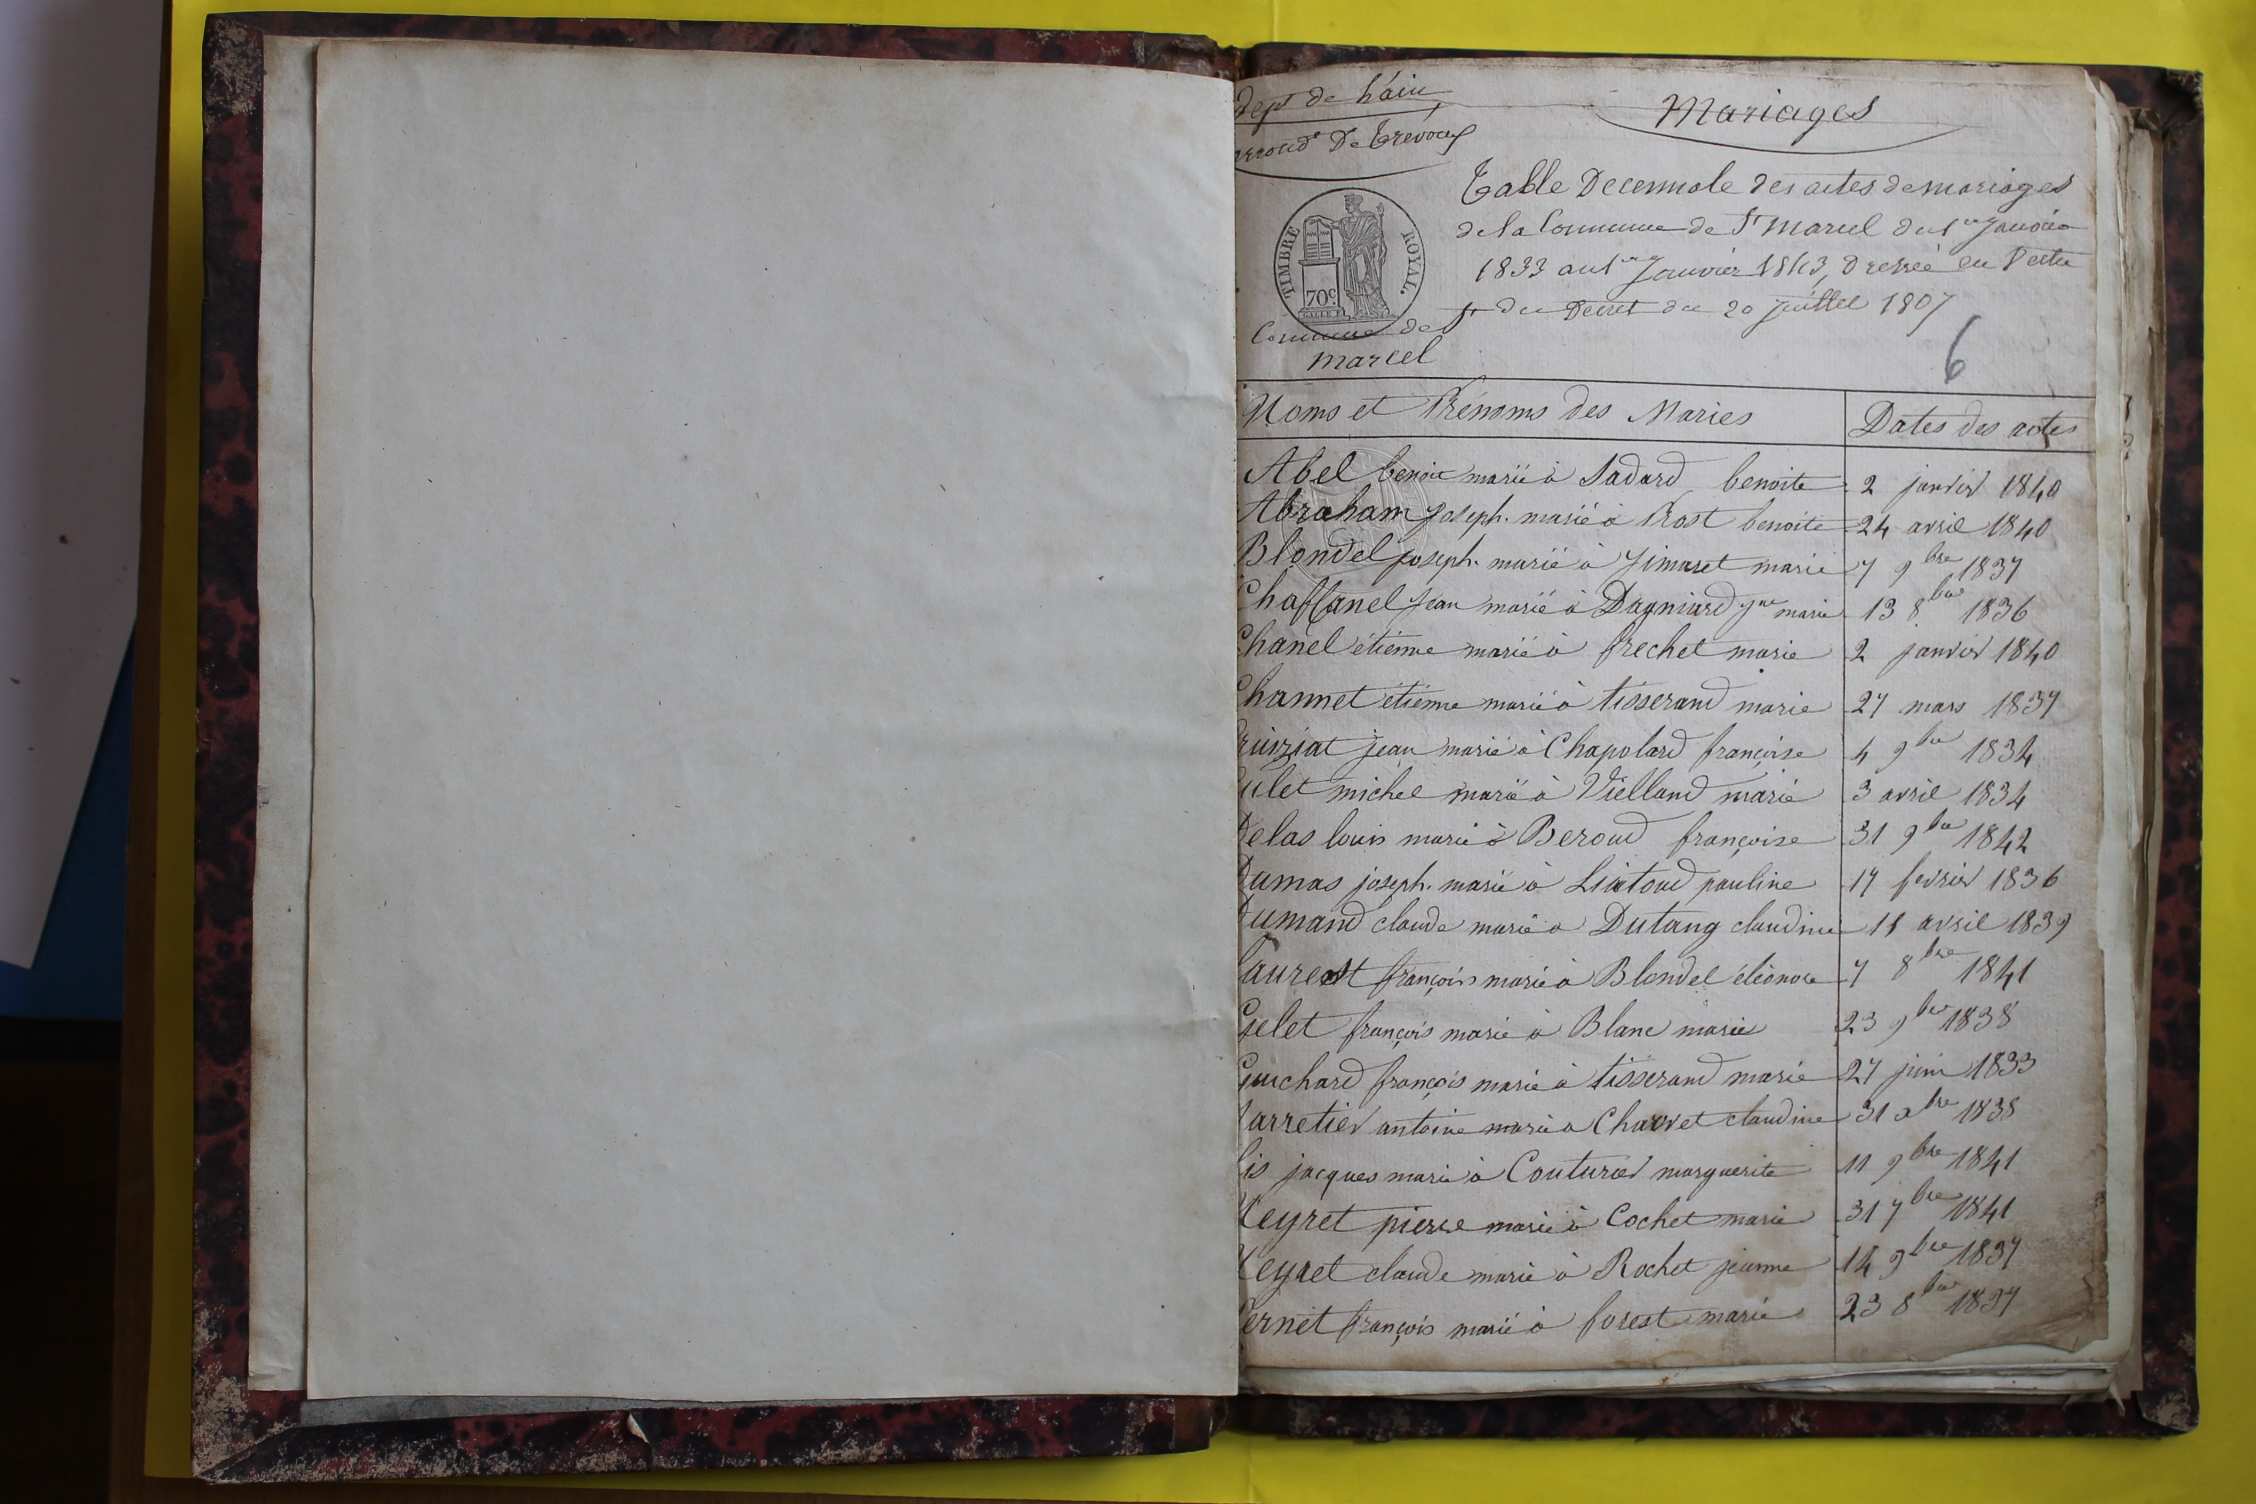 dept de L'ain
Mariages
arrond.t De Trévoux
Table Decennale des actes de mariages
de la Commune de St Marcel du 1er Janvier
1833 au 1er Janvier 1843, dressée en Vertu
du Décret du 20 juillet 1807
TIMBRE ROYAL.
70c
Commune de St
marcel
6
Noms et Prénoms des Maries
Dates des actes
Abel benoit marié à Sadard benoite 2 janvier 1840
Abraham joseph marié à Prost benoite 24 avril 1840
Blondel joseph marié à Jimaret marie 7 9bre 1837
Chaffanel Jean marié à Dagniard jne marie 13 8bre 1836
Chanel étienne marié à frechet marie 2 janvier 1840
Channet étienne marié à tisserand marie 27 mars 1837
ruiziat jean marié à Chapolard françoise 4 9bre 1834
ulet michel marié à Vielland marie 3 avril 1834
Delas louis marié à Beroud françoise 31 9bre 1842
Dumas joseph marié à Liatoud pauline 17 fevrier 1836
Dumand claude marié a Dutang claudine 11 avril 1839
Laurent françois marié à Blondel éléonore 7 8bre 1841
Gelet françois marié à Blanc marie 23 9bre 1838
Guichard françois marié à tisserand marie 27 juin 1833
arretier antoine marié a Charvet claudine 31 xbre 1838
is jacques marié à Couturier marguerite 11 9bre 1841
Neyret pierre marié à Cochet marie 31 7bre 1841
Neyret claude marié à Rochet jeanne 14 9bre 1837
Pernet françois marié à forest marie 23 8bre 1837